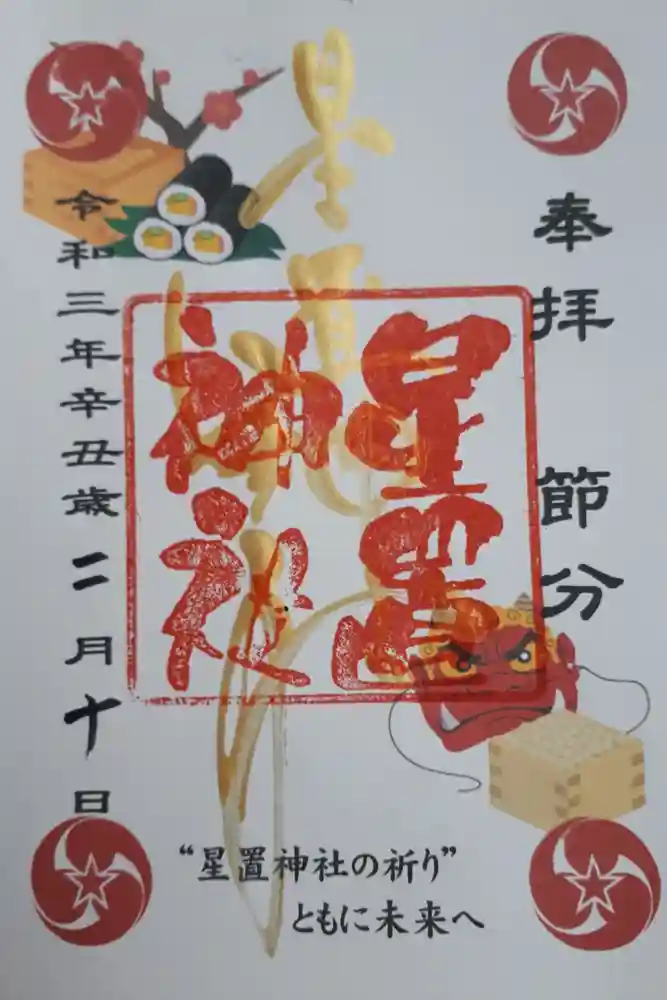 奉拝 節分
星置神社
星置
神社
令和三年辛丑歳二月十日
“星置神社の祈り”
ともに未来へ